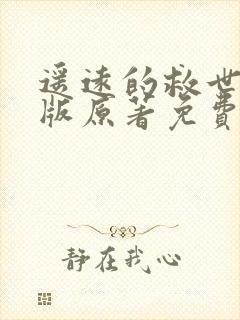 遥远的救世
版原著免费
静在我心